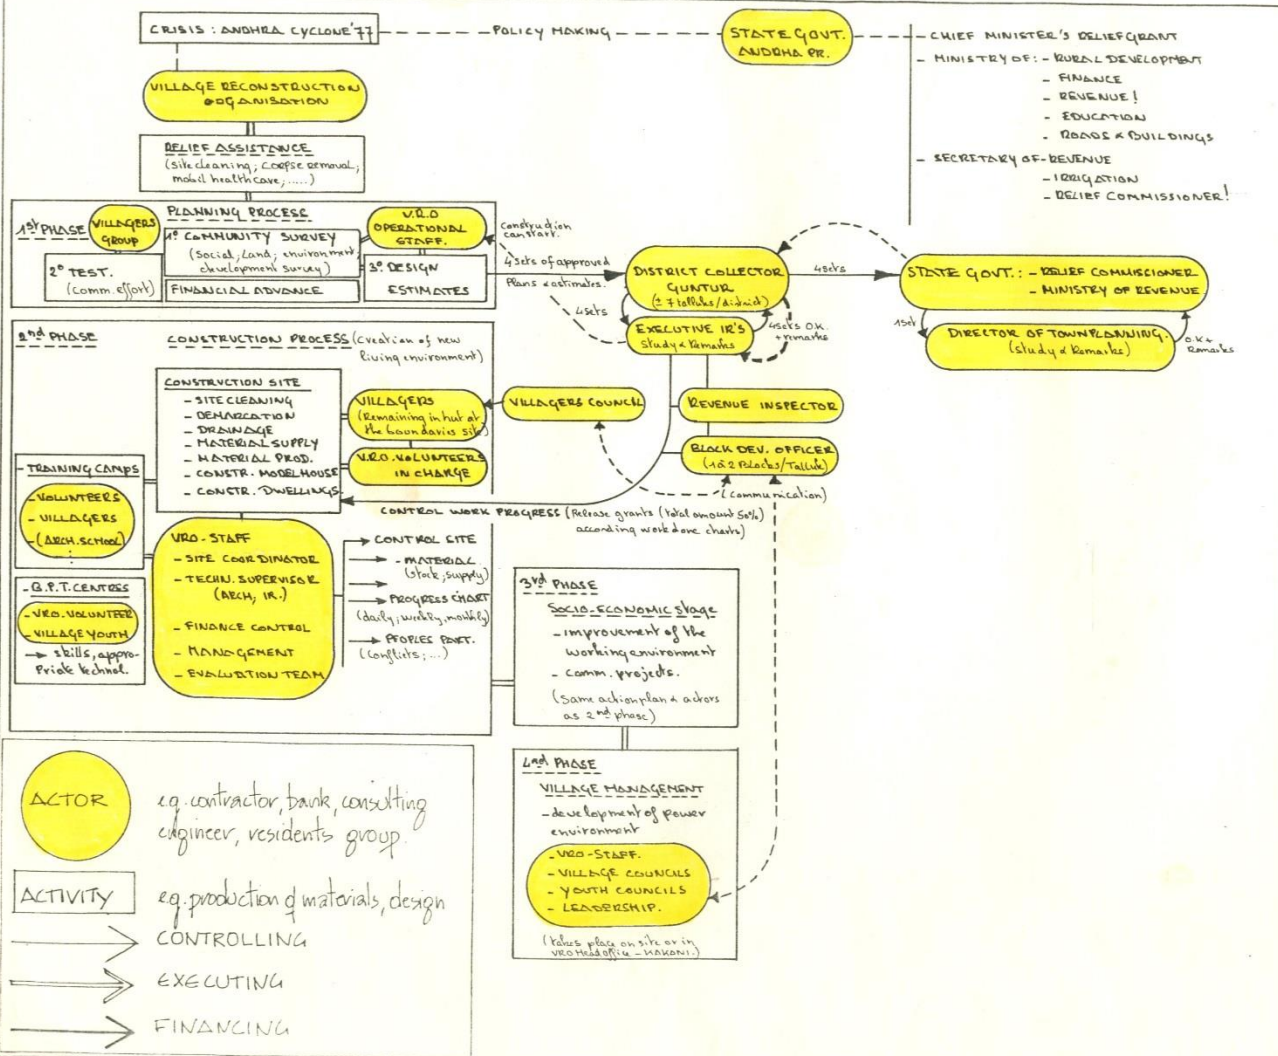 CRISIS : ANDHRA CYCLONE'77
POLICY MAKING
STATE GOVT.
ANDRHA PR.
- CHIEF MINISTER'S RELIEFGRANT
- MINISTRY OF: - RURAL DEVELOPMENT
- FINANCE
- REVENUE!
- EDUCATION
- ROADS & BUILDINGS
- SECRETARY OF - REVENUE
- IRRIGATION
- RELIEF COMMISSIONER!
VILLAGE RECONSTRUCTION
ORGANISATION
RELIEF ASSISTANCE
(site cleaning; corpse removal;
mobil healthcare; .....)
1st PHASE
VILLAGERS
GROUP
PLANNING PROCESS
1° COMMUNITY SURVEY
(Social, Land, environment,
development survey)
FINANCIAL ADVANCE
2° TEST.
(Comm. effort)
V.R.O
OPERATIONAL
STAFF.
3° DESIGN
ESTIMATES
Construction
can start.
4 sets of approved
Plans & estimates.
DISTRICT COLLECTOR
GUNTUR
(± 7 talluks/district)
4 sets
EXECUTIVE IR'S
Study & Remarks
4 sets O.K.
+ remarks
4 sets
STATE GOVT. : - RELIEF COMMISCIONER
- MINISTRY OF REVENUE
1 set
DIRECTOR OF TOWNPLANNING.
(study & Remarks)
O.K +
Remarks
2nd PHASE
CONSTRUCTION PROCESS (Creation of new
living environment)
CONSTRUCTION SITE
- SITE CLEANING
- DEMARCATION
- DRAINAGE
- MATERIAL SUPPLY
- MATERIAL PROD.
- CONSTR. MODELHOUSE
- CONSTR. DWELLINGS.
VILLAGERS
(Remaining in hut at
the boundaries site)
V.R.O. VOLUNTEERS
IN CHARGE
VILLAGERS COUNCIL
REVENUE INSPECTOR
BLOCK DEV. OFFICER
(1 à 2 Blocks/Talluk)
(communication)
CONTROL WORK PROGRESS (Release grants (total amount 50%)
according work done charts)
- TRAINING CAMPS
- VOLUNTEERS
- VILLAGERS
- (ARCH. SCHOOL)
- B.P.T. CENTRES
- VRO. VOLUNTEER
- VILLAGE YOUTH
→ skills, appro-
priate technol.
VRO - STAFF
- SITE COORDINATOR
- TECHN. SUPERVISOR
(ARCH; IR.)
- FINANCE CONTROL
- MANAGEMENT
- EVALUATION TEAM
→ CONTROL SITE
→ - MATERIAL
(stock; supply)
→ PROGRESS CHART
(daily; weekly, monthly)
→ PEOPLES PART.
(conflicts; ...)
3rd PHASE
SOCIO-ECONOMIC stage
- improvement of the
working environment
- comm. projects.
(Same action plan & actors
as 2nd phase)
4nd PHASE
VILLAGE MANAGEMENT
- development of power
environment
- VRO - STAFF.
- VILLAGE COUNCILS
- YOUTH COUNCILS
- LEADERSHIP.
(takes place on site or in
VRO Head office -
ACTOR
e.g. contractor, bank, consulting
engineer, residents group.
ACTIVITY
e.g. production of materials, design
CONTROLLING
EXECUTING
FINANCING